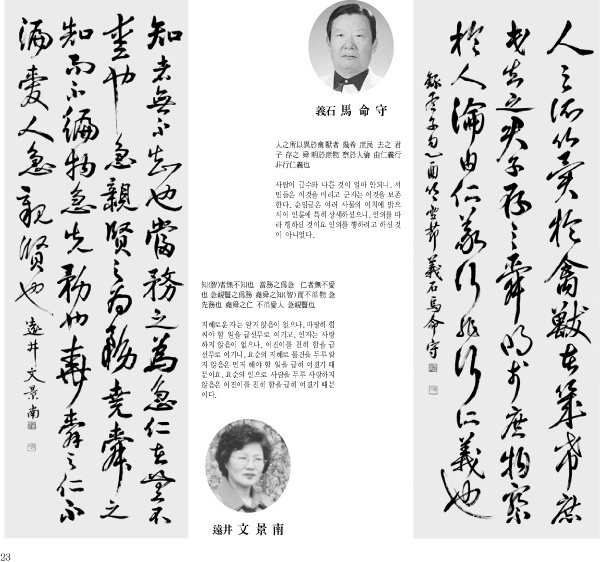 義石 馬 命 守
人之所以異於禽獸者 幾希 庶民 去之 君
子 存之 舜 明於庶物 察於人倫 由仁義行
非行仁義也
사람이 금수와 다른 것이 얼마 안되니, 서
민들은 이것을 버리고 군자는 이것을 보존
한다. 순임금은 여러 사물의 이치에 밝으
시어 인륜에 특히 상세하셨으니, 인의를 따
라 행하신 것이요 인의를 행하려고 하신 것
이 아니었다.
人之所以異於禽獸者幾希庶
民去之君子存之舜明於庶物察
於人倫由仁義行非行仁義也
錄孟子句乙酉 雪節 義石馬命守
知(智)者無不知也 當務之爲急 仁者無不愛
也 急親賢之爲務 堯舜之知(智)而不徧物 急
先務也 堯舜之仁 不徧愛人 急親賢也
지혜로운자는 알지 않음이 없으나, 마땅히 힘
써야 할 일을 급선무로 여기고, 인자는 사랑
하지 않음이 없으나, 어진이를 친히 함을 급
선무로 여기나, 요순의 지혜로 물건을 두루 알
지 않음은 먼저 해야 할 일을 급히 여겼기 때
문이요, 요순의 인으로 사람을 두루 사랑하지
않음은 어진이를 친히 함을 급히 여겼기 때문
이다.
遠井 文 景 南
知者無不知也當務之為急仁者無不
愛也急親賢之為務堯舜之
知而不徧物急先務也堯舜之仁不
徧愛人急親賢也 遠井文景南
23